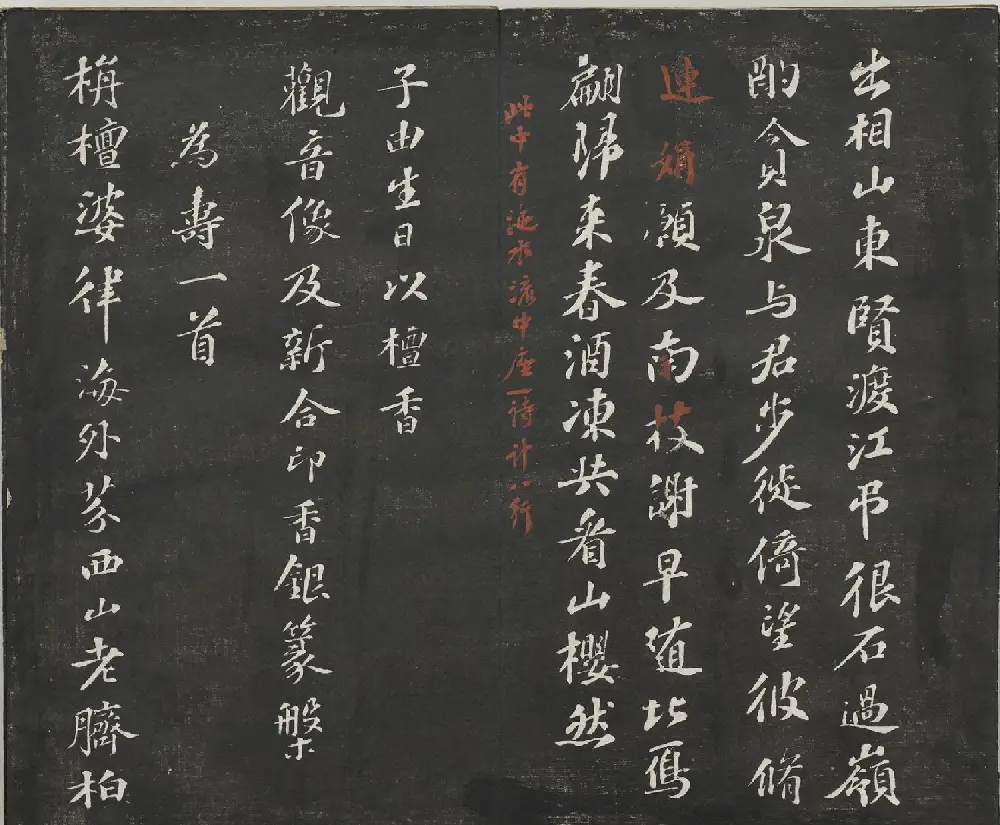 出相山東賢渡江弔很石過嶺
酌貪泉与君步徙倚望彼脩
連娟願及南枝謝早隨北鴈
翩歸来春酒凍共看山櫻然
此中有池水流中座一詩計八行
子由生日以檀香
觀音像及新合印香銀篆槃
為壽一首
栴檀婆律海外芬西山老臍柏